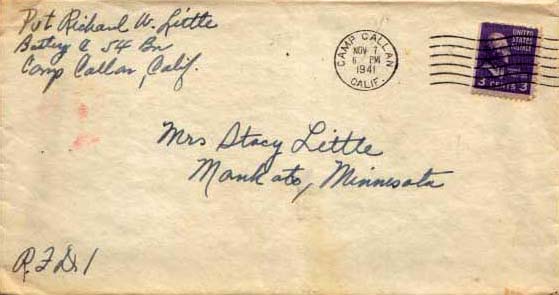 Pvt Richard W. Little
Battery C 54 Bn
Camp Callan, Calif.
CAMP CALLAN
NOV 7
6 PM
1941
CALIF.
UNITED
STATES
POSTAGE
3 CENTS 3
Mrs Stacy Little
Mankato, Minnesota
R.F.D. 1